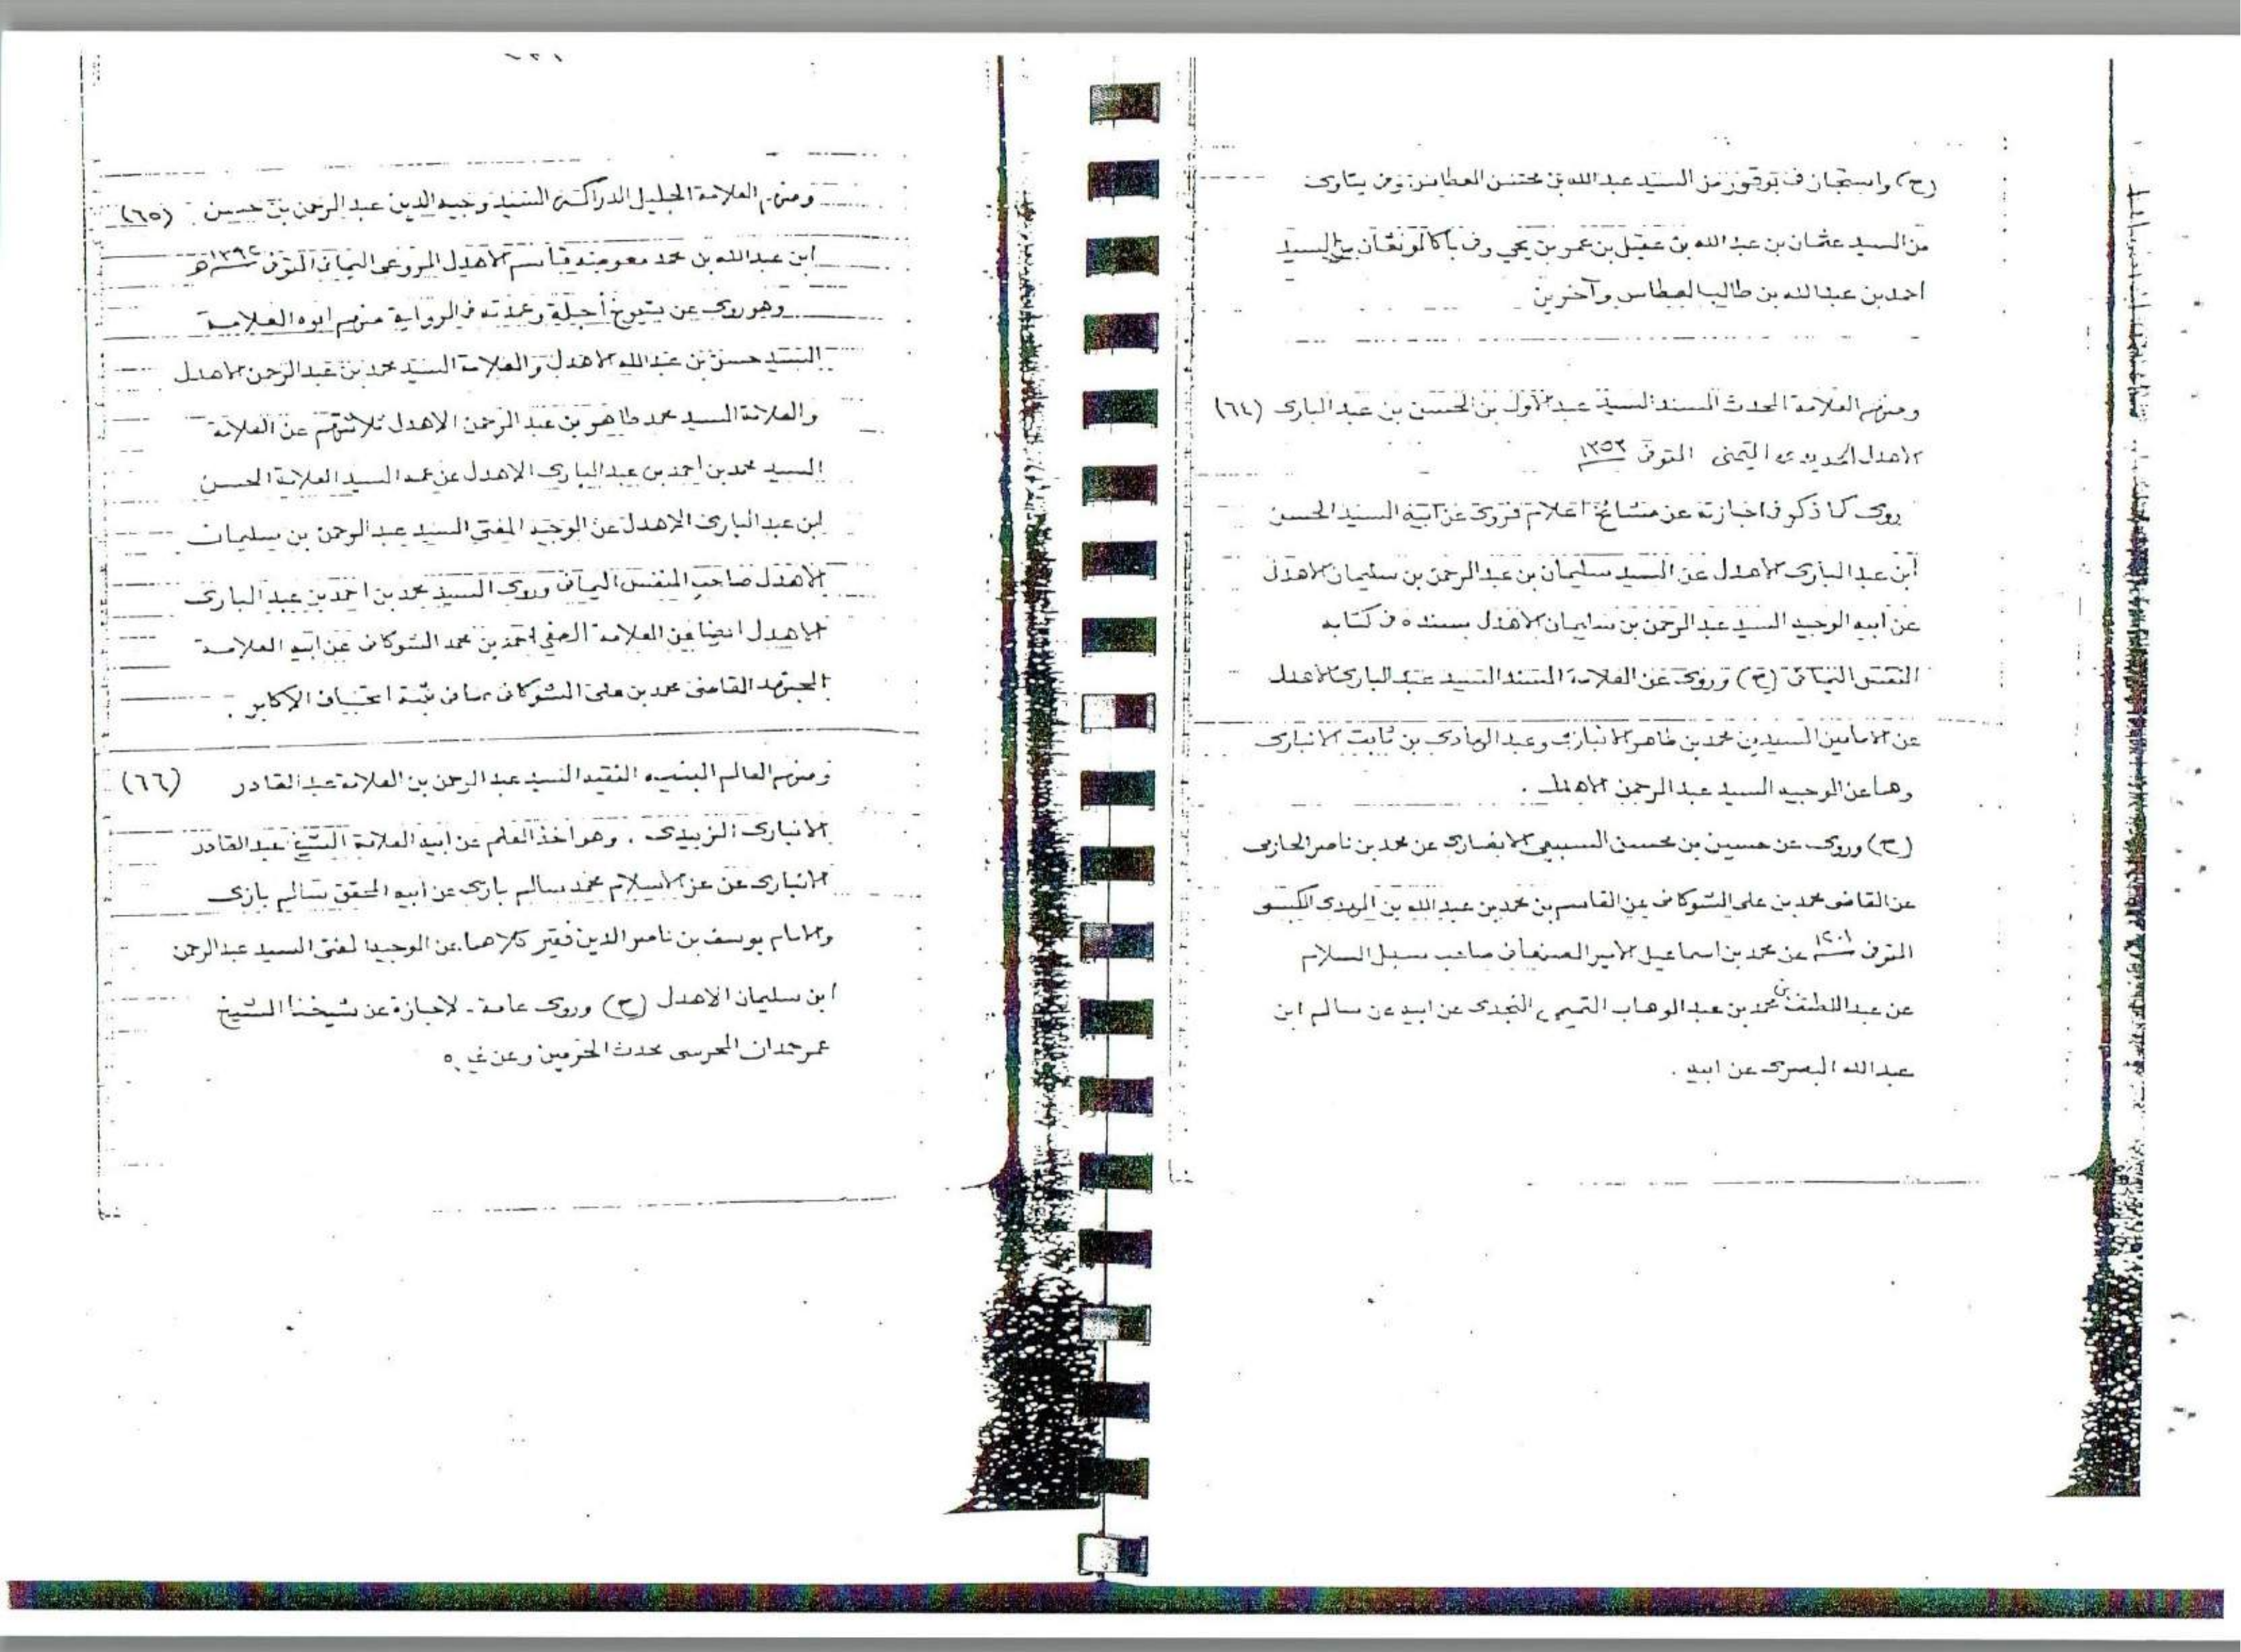 (ح) واستجاز في بوقور من السيد عبدالله بن محسن العطاس وفي بتاوى
من السيد عثمان بن عبدالله بن عقيل بن عمر بن يحي وف باكالونقان من السيد
احمد بن عبدالله بن طالب العطاس وآخرين
ومنهم العلامة المحدث المسند السيد عبد الأول بن الحسن بن عبد البارى (٦٤)
الأهدل الحديدى اليمنى المتوفى ١٣٥٣
روى كما ذكر فى اجازته عن مشائخ اعلام فروى عن ابيه السيد الحسن
ابن عبد البارى الأهدل عن السيد سليمان بن عبد الرحمن بن سليمان الأهدل
عن ابيه الوجيه السيد عبد الرحمن بن سليمان الأهدل بسنده ف كتابه
النفس اليمانى (ح) وروى عن العلامة المسند السيد عبد البارى الأهدل
عن الامامين السيدين محمد بن طاهر الانبارى وعبد الهادى بن ثابت الانبارى
وهما عن الوجيه السيد عبد الرحمن الاهدل .
(ح) وروى عن حسين بن محسن السبيعى الانصارى عن محمد بن ناصر الحازمى
عن القاضى محمد بن على الشوكانى عن القاسم بن محمد بن عبدالله بن المهدى الكبسى
المتوفى سنة ١٢٠١ عن محمد بن اسماعيل الأمير الصنعانى صاحب سبل السلام
عن عبد اللطيف بن محمد بن عبد الوهاب التميمى النجدى عن ابيه عن سالم ابن
عبدالله البصرى عن ابيه .
ومنهم العلامة الجليل الدراكة السيد وجيه الدين عبد الرحمن بن حسين (٦٥)
ابن عبدالله بن محمد معوضه قاسم الأهدل المروعى اليمانى المتوفى سنة ١٣٩٢هـ
وهو روى عن شيوخ أجلة وعمدته فى الرواية منهم ابوه العلامة
السيد حسن بن عبدالله الأهدل والعلامة السيد محمد بن عبد الرحمن الأهدل
والعلامة السيد محمد طاهر بن عبد الرحمن الاهدل ثلاثتهم عن العلامة
السيد محمد بن احمد بن عبد البارى الاهدل عن عمه السيد العلامة الحسن
ابن عبد البارى الاهدل عن الوجيه المفتى السيد عبد الرحمن بن سليمان
الأهدل صاحب النفس اليمانى وروى السيد محمد بن احمد بن عبد البارى
الأهدل ايضا عن العلامة الصفى احمد بن محمد الشوكانى عن ابيه العلامة
المجتهد القاضى محمد بن على الشوكانى بما فى ثبته اتحاف الأكابر .
ومنهم العالم النبيه الفقيه السيد عبد الرحمن بن العلامة عبد القادر (٦٦)
الأنبارى الزبيدى . وهو أخذ العلم عن ابيه العلامة الشيخ عبد القادر
الأنبارى عن عز الاسلام محمد سالم بازى عن ابيه المحقق سالم بازى
والامام يوسف بن ناصر الدين فقير كلاهما عن الوجيه المفتى السيد عبد الرحمن
ابن سليمان الاهدل (ح) وروى عامة الاجازة عن شيخنا الشيخ
عمر حمدان المحرسى محدث الحرمين وعن غيره